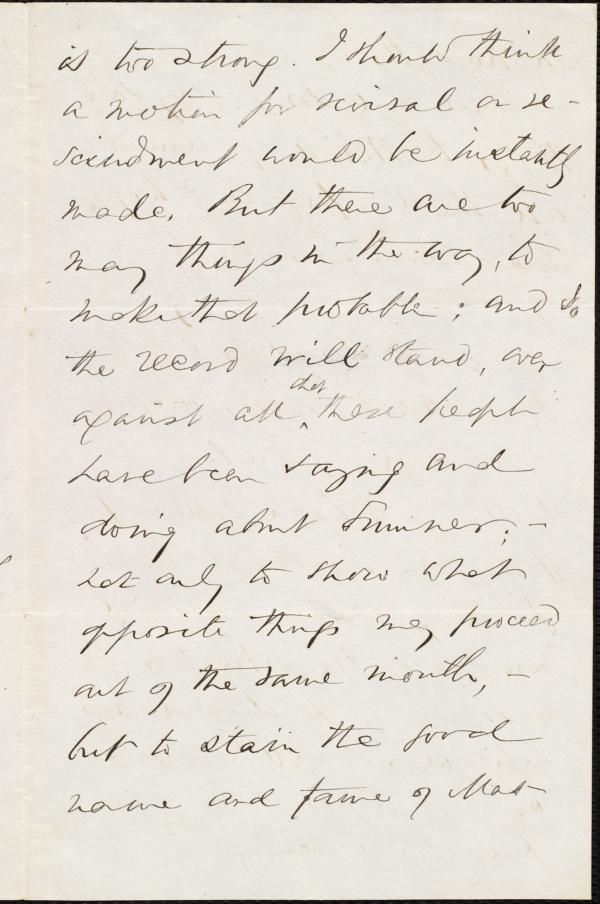 is too strong. I should think
a motion for reversal or re-
scindment would be instantly
made. But there are too
many things in the way, to
make that probable; and so
the record will stand, over
against all that these people
have been saying and
doing about Sumner; –
not only to show what
opposite things may proceed
out of the same mouth, –
but to stain the good
name and fame of Mas-